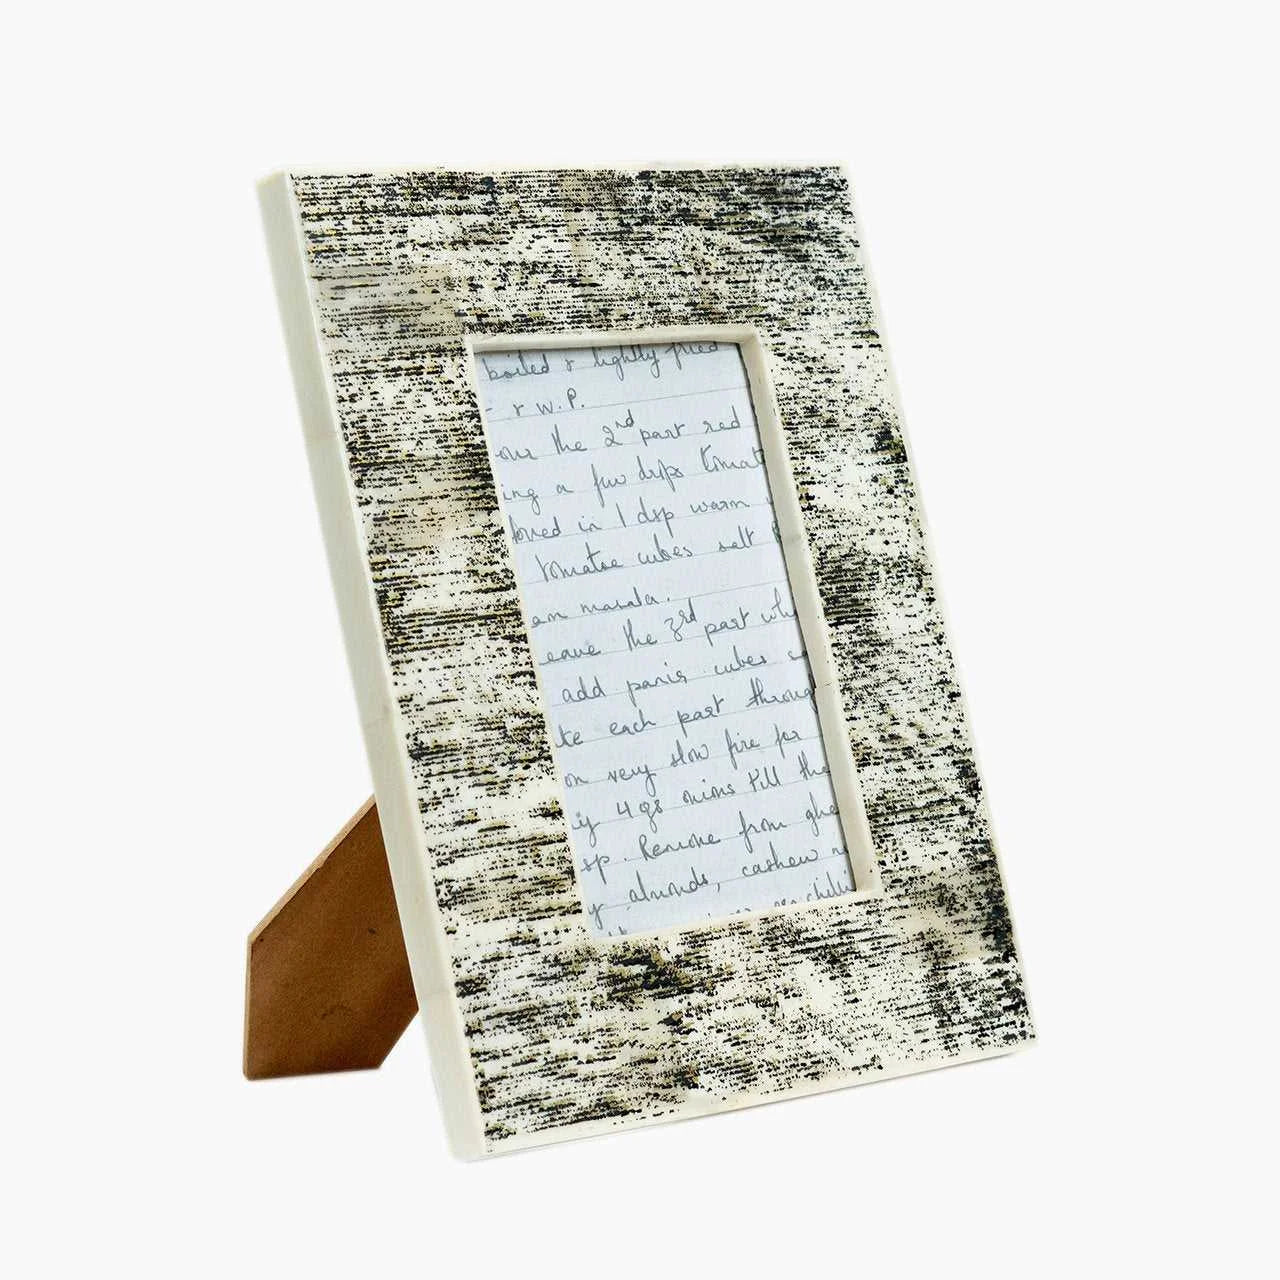 boiled & lightly fried
- & W.P.
our the 2nd part red
ing a few drops tomat
loved in 1 dsp warm
tomatoe cubes salt
am masala.
eave the 3rd part whi
add panir cubes
ke each part throug
on very slow fire for
y 4 gs onions till the
sp. Remove from ghe
y almonds, cashew n
chili